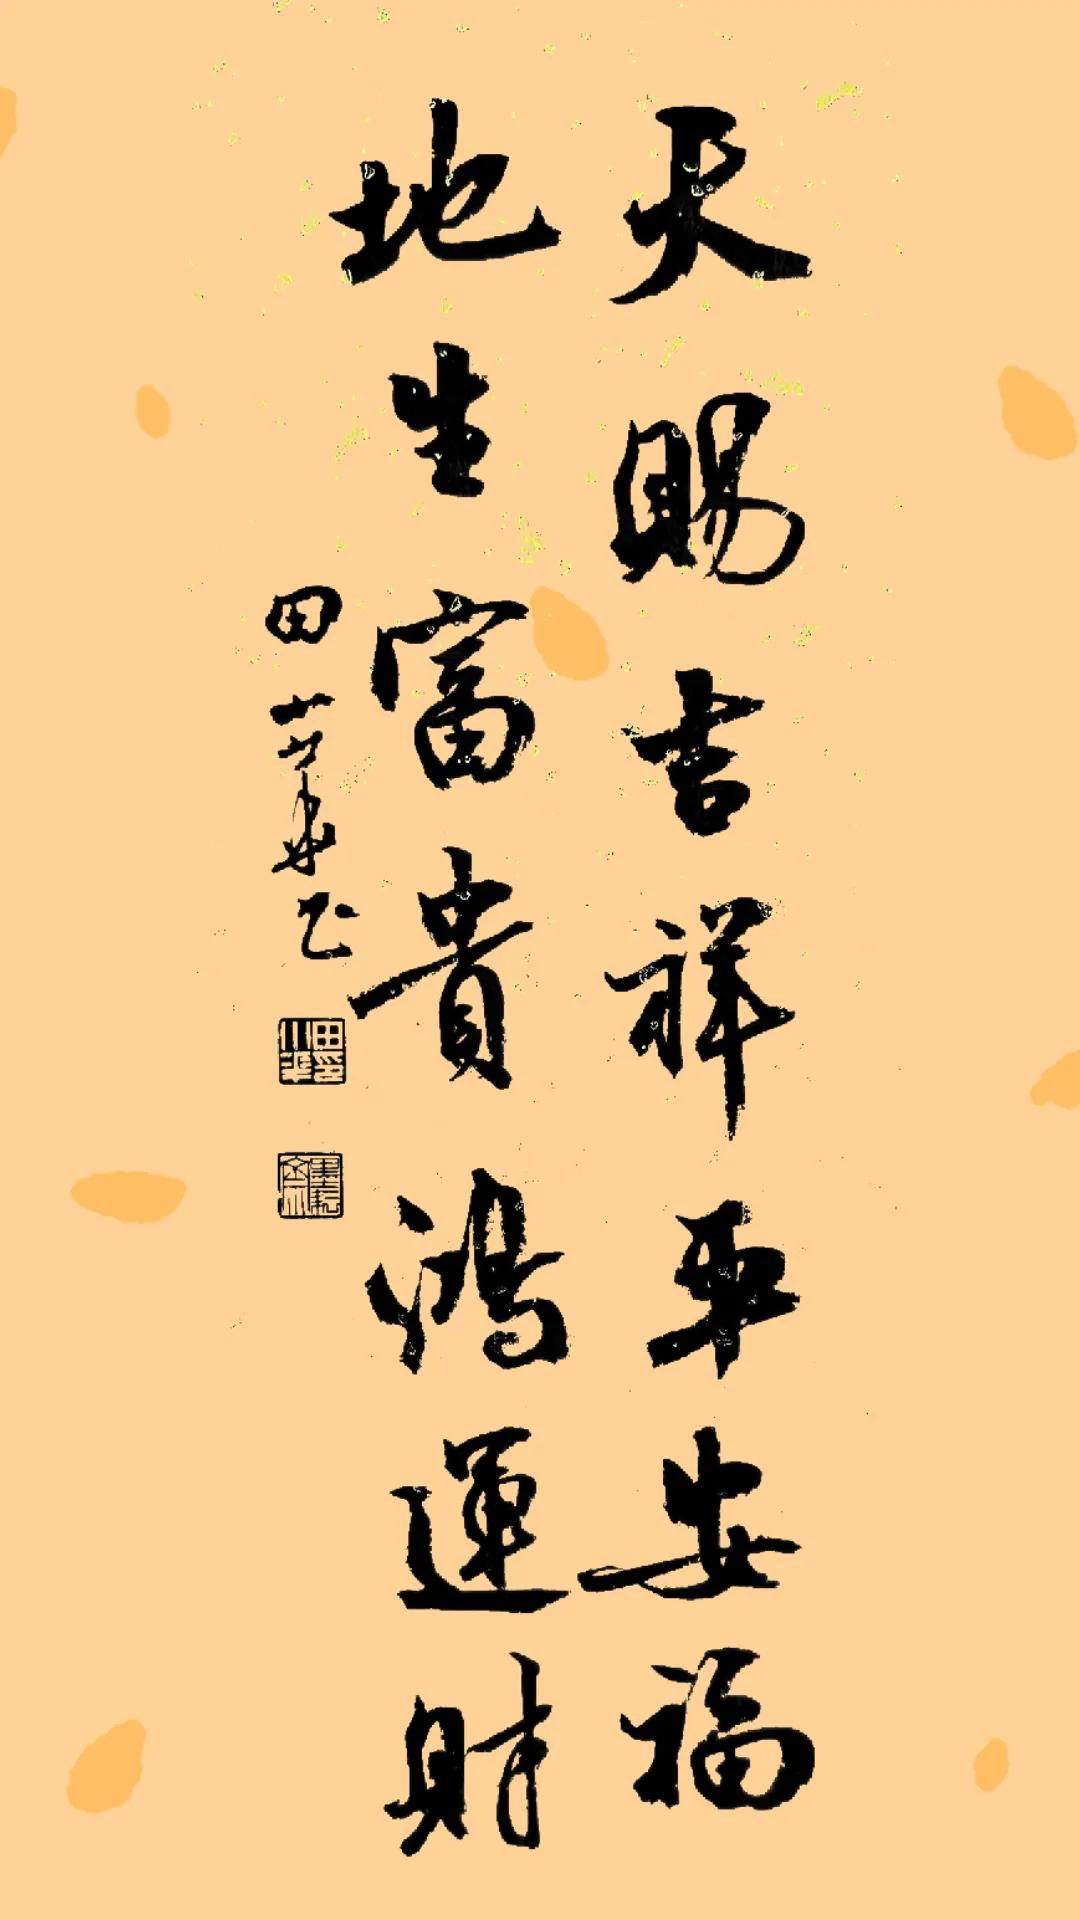 天賜吉祥平安福
地生富貴鴻運財
田